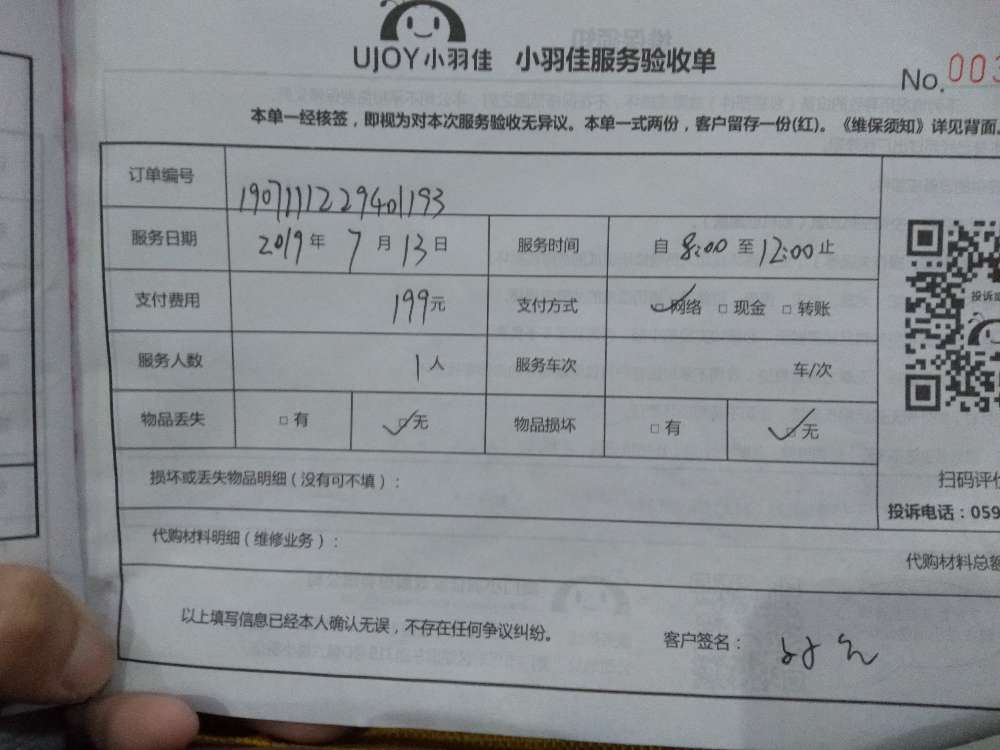 UJOY小羽佳 小羽佳服务验收单
No. 003
本单一经核签，即视为对本次服务验收无异议。本单一式两份，客户留存一份(红)。《维保须知》详见背面。
订单编号 1907111229401193
服务日期 2019年7月13日 服务时间 自 8:00 至 12:00 止
支付费用 199元 支付方式 ☑网络 □现金 □转账
服务人数 1人 服务车次 车/次
物品丢失 □有 ☑无 物品损坏 □有 ☑无
损坏或丢失物品明细（没有可不填）：
扫码评价
投诉电话：059
代购材料明细（维修业务）：
代购材料总额
以上填写信息已经本人确认无误，不存在任何争议纠纷。
客户签名：